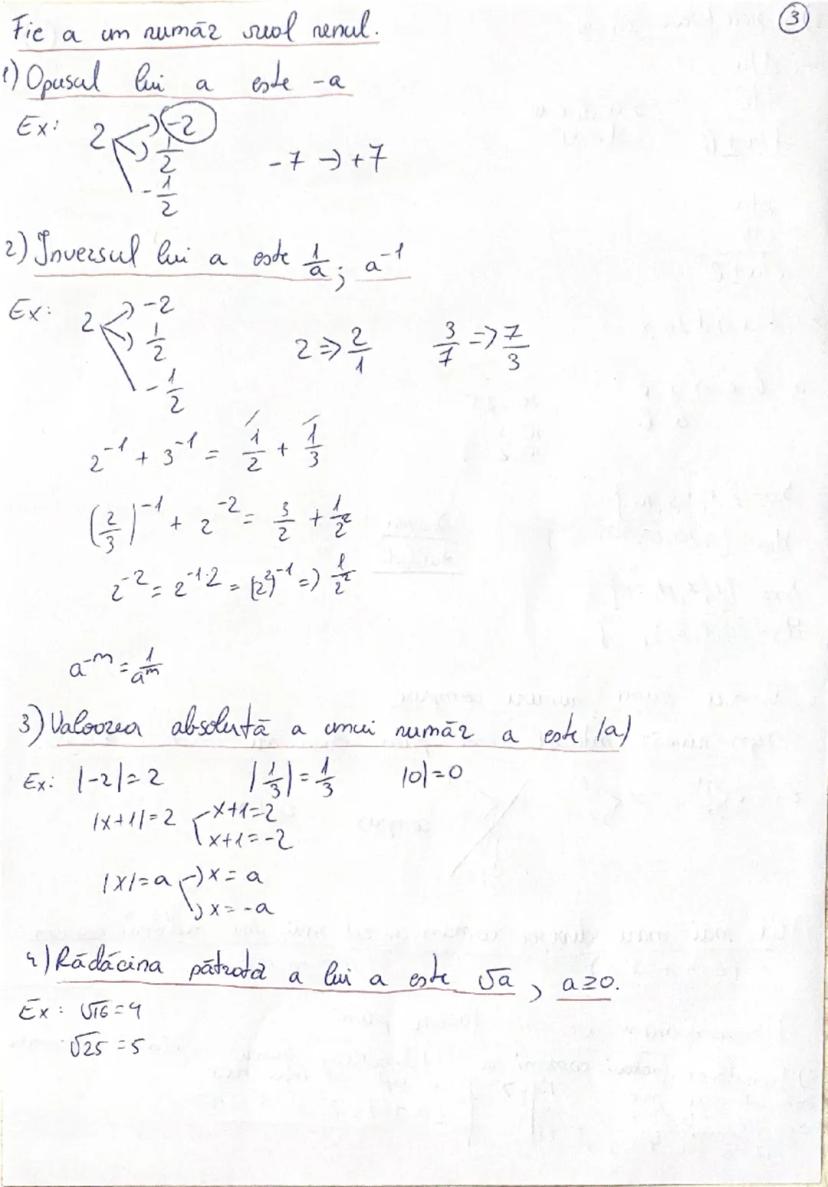 3
Fie a un număr real nenul.
1) Opusul lui a este -a
Ex: 2 → -2
→ 1/2
-1/2
-7 → +7
2) Inversul lui a este 1/a ; a⁻¹
Ex: 2 → -2
→ 1/2
-1/2
2 => 2/1 3/7 => 7/3
2⁻¹ + 3⁻¹ = 1/2 + 1/3
(2/3)⁻¹ + 2⁻² = 3/2 + 1/2²
2⁻² = 2⁻¹·² = (2²)⁻¹ => 1/2²
a⁻ᵐ = 1/aᵐ
3) Valoarea absolută a unui număr a este |a|
Ex: |-2| = 2 |1/3| = 1/3 |0| = 0
|x+1| = 2 x+1=2
x+1=-2
|x| = a → x = a
→ x = -a
4) Rădăcina pătrată a lui a este √a , a≥0.
Ex: √16 = 4
√25 = 5